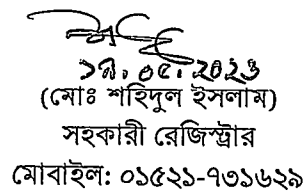 (মোঃ শহিদুল ইসলাম)
সহকারী রেজিস্ট্রার
মোবাইল: ০১৫২১-৭৩১৬২৯